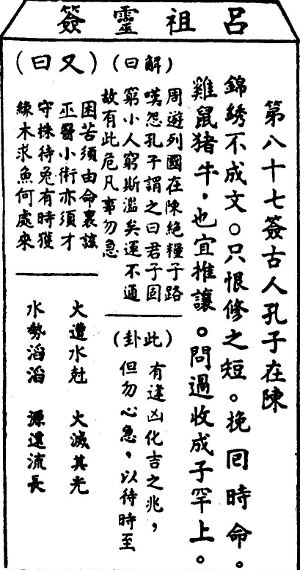 呂祖靈簽
第八十七簽古人孔子在陳
錦綉不成文。只恨修之短。挽囘時命。
雞鼠猪牛。也宜推讓。問過收成子罕上。
(解曰)
周遊列國在陳絕糧子路
嘆怨孔子謂之曰君子固
窮小人窮斯滥矣運不通
故有此危凡事勿急
(此卦)
有逢凶化吉之兆，
但勿心急，以待時至
(又曰)
困苦須由命裏該
巫醫小術亦須才
守株待兔有時獲
緣木求魚何處來
火遭水尅 火滅其光
水勢滔滔 源遠流長